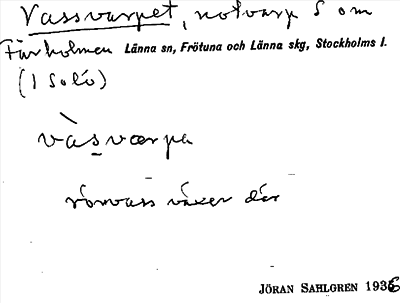 Vassvarpet, notvarp S om
Fårholmen Länna sn, Frötuna och Länna skg, Stockholms l.
(I Solö)
vàsværpa
rörvass växer där
JÖRAN SAHLGREN 1936